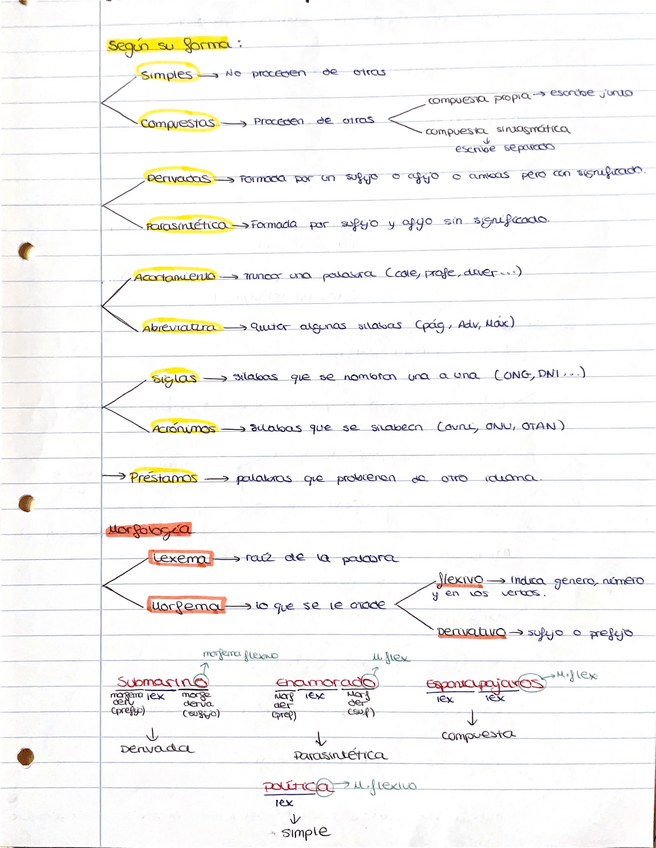 Según su forma:
Simples → No proceden de otras
compuesta propia → escribe junto
Compuestas → Proceden de otras
compuesta sintagmática
↓
escribe separado
Derivadas → Formada por un sufijo o afijo o ambas pero con significado.
Parasintética → Formada por sufijo y afijo sin significado.
Acortamiento → truncar una palabra (cole, profe, dever...)
Abreviatura → Quitar algunas silabas (pág, Adv, Máx)
Siglas → silabas que se nombran una a una (ONG, DNI...)
Acrónimos → silabas que se silabean (ovni, ONU, OTAN)
→ Préstamos → palabras que probienen de otro idioma.
Morfología
Lexema → raíz de la palabra
flexivo → Indica genero, número
y en los verbos.
Morfema → lo que se le añade
Derivativo → sufijo o prefijo
morfema flexivo
M. flex
Submarino
Enamorado
Espantapajaros → M. flex
morfema lex morfe
derv derva
(prefijo) (sufijo)
Morf lex Morf
der der
(pref) (suf)
lex lex
↓
Derivada
↓
Parasintética
↓
compuesta
Política → M. flexivo
lex
↓
simple